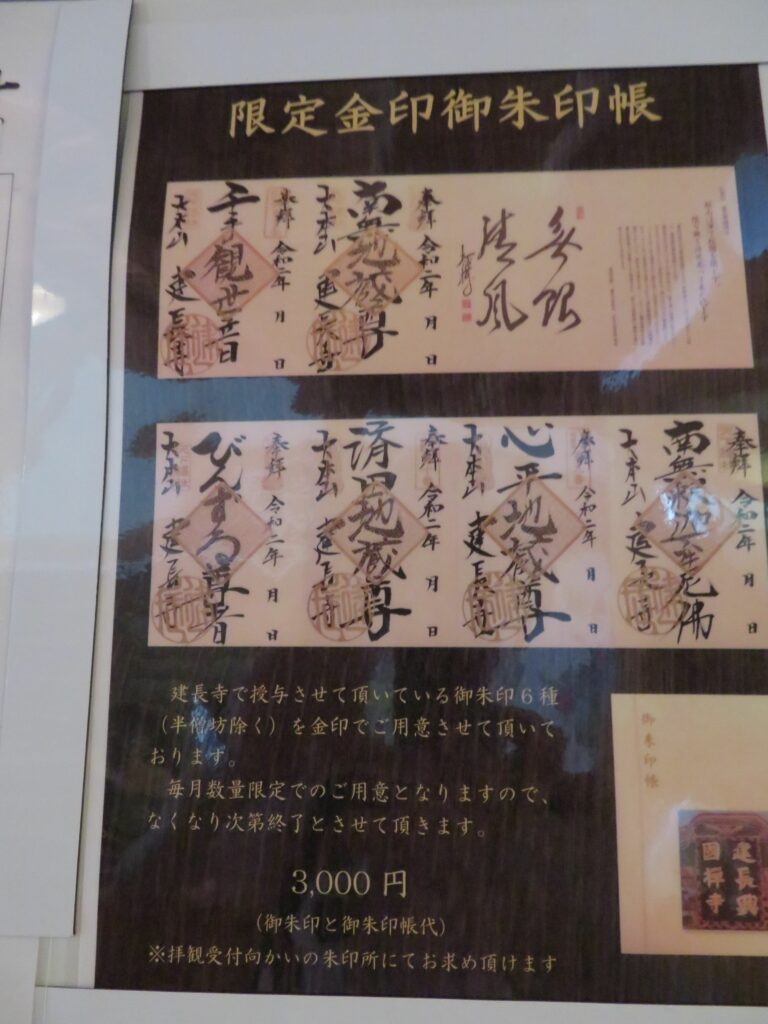 限定金印御朱印帳
奉拝 令和二年 月 日
南無地蔵尊
大本山 建長寺
奉拝 令和二年 月 日
千手観世音
大本山 建長寺
清風
奉拝 令和二年 月 日
南無釈迦牟尼佛
大本山 建長寺
奉拝 令和二年 月 日
心平地蔵尊
大本山 建長寺
奉拝 令和二年 月 日
済田地蔵尊
大本山 建長寺
奉拝 令和二年 月 日
びんずる尊者
大本山 建長寺
建長寺で授与させて頂いている御朱印6種
（半僧坊除く）を金印でご用意させて頂いて
おります。
毎月数量限定でのご用意となりますので、
なくなり次第終了とさせて頂きます。
3,000 円
（御朱印と御朱印帳代）
※拝観受付向かいの朱印所にてお求め頂けます
御朱印帳
建長興
國禅寺